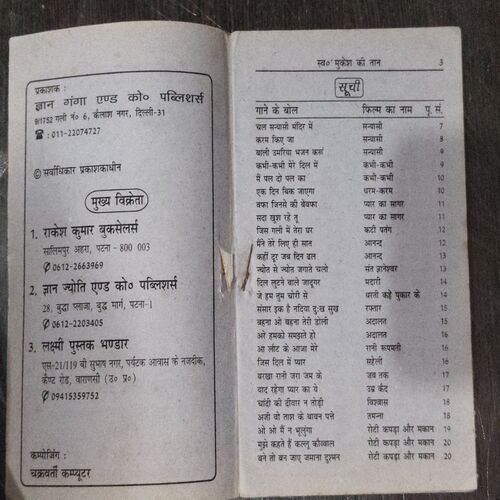 प्रकाशक :
ज्ञान गंगा एण्ड को० पब्लिशर्स
9/1752 गली नं० 6, कैलाश नगर, दिल्ली-31
☎ : 011-22074727
© सर्वाधिकार प्रकाशकाधीन
मुख्य विक्रेता
1. राकेश कुमार बुकसेलर्स
सालिमपुर अहरा, पटना - 800 003
✆ 0612-2663969
2. ज्ञान ज्योति एण्ड को० पब्लिशर्स
28, बुद्धा प्लाजा, बुद्ध मार्ग, पटना-1
✆ 0612-2203405
3. लक्ष्मी पुस्तक भण्डार
एस-21/119 बी सुभाष नगर, पर्यटक आवास के नजदीक,
कैण्ट रोड, वाराणसी (उ० प्र०)
✆ 09415359752
कम्पोजिंग :
चक्रवर्ती कम्प्यूटर
स्व० मुकेश की तान 3
सूची
गाने के बोल फिल्म का नाम पृ. सं.
चल सन्यासी मंदिर में सन्यासी 7
करम किए जा सन्यासी 8
बाली उमरिया भजन करूं सन्यासी 9
कभी-कभी मेरे दिल में कभी-कभी 9
मैं पल दो पल का कभी-कभी 10
एक दिन बिक जाएगा धरम-करम 10
वफा जिनसे की बेवफा प्यार का सागर 11
सदा खुश रहे तू प्यार का सागर 11
जिस गली में तेरा घर कटी पतंग 12
मैंने तेरे लिए ही सात आनन्द 12
कहीं दूर जब दिन ढल आनन्द 13
ज्योत से ज्योत जगाते चलो संत ज्ञानेश्वर 13
दिल लूटने वाले जादूगर मदारी 14
जे हम तुम चोरी से धरती कहे पुकार के 14
संसार इक है नदिया दुःख सुख रफ्तार 15
बहना ओ बहना तेरी डोली अदालत 15
अरे हमको समझते हो अदालत 16
आ लौट के आजा मेरे रानी रूपमती 16
जिस दिल में प्यार सहेली 16
बरखा रानी जरा जम के जब तक 17
याद रहेगा प्यार का ये उम्र कैद 17
चांदी की दीवार न तोड़ी विश्वास 18
अजी वो ताश के बावन पत्ते तमन्ना 18
ओ ओ मैं न भूलुंगा रोटी कपड़ा और मकान 19
मुझे कहते हैं कल्लू कौव्वाल रोटी कपड़ा और मकान 20
बने तो बन जाए जमाना दुश्मन रोटी कपड़ा और मकान 20